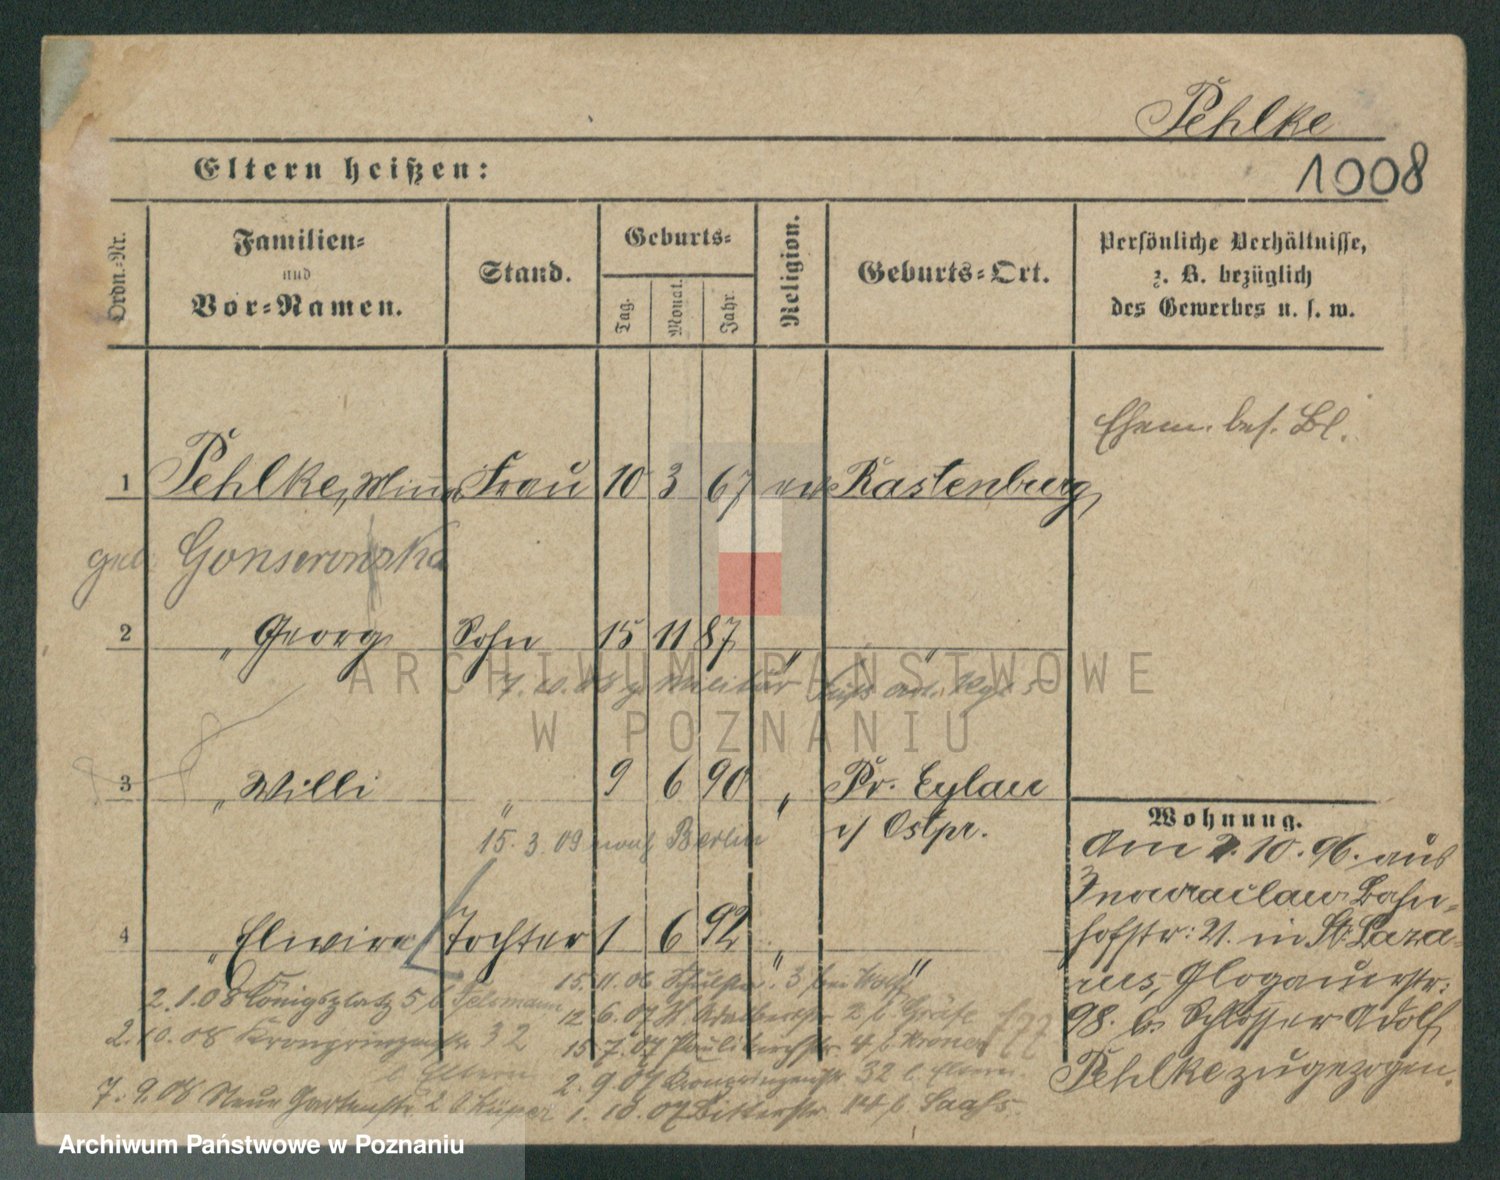 Pehlke
1008
Eltern heißen:
Ordn.-Nr.
Familien-
und
Vor-Namen.
Stand.
Geburts-
Tag.
Monat.
Jahr.
Religion.
Geburts-Ort.
Persönliche Verhältnisse,
z. B. bezüglich
des Gewerbes u. s. w.
Ehem. bes. Bl.
1 Pehlke, Minna Frau 10 3 67 ev Rastenburg
geb. Gonserowska
2 " Georg Sohn 15 11 87 " "
7. 10. 08 z. Militär Art. Rgt. 5
3 " Willi " 9 6 90 " Pr. Eylau
i/ Ostpr.
15. 3. 09 nach Berlin
4 " Elwira Tochter 1 6 92 " "
Wohnung.
Am 2. 10. 96. aus
Inowraclaw Bahn-
hofstr: 21. in St. Laza-
rus, Glogauerstr:
98. b. Schlosser Adolf
Pehlke zugezogen.
2. 1. 08 Königsplatz 5 b.
2. 10. 08 Kronprinzenstr. 32
b. Eltern
7. 9. 08 Neue Gartenstr. 2 b
15. 11. 06 Schulstr. 3 bei Wolff
12. 6. 07 St. Adalbertstr. 2 b Gräfe
15. 7. 07 Paulikirchstr. 4 b
2. 9. 07 Kronprinzenstr. 32 b. Eltern.
1. 10. 07 Ritterstr. 14 b
ARCHIWUM PAŃSTWOWE
W POZNANIU
Archiwum Państwowe w Poznaniu